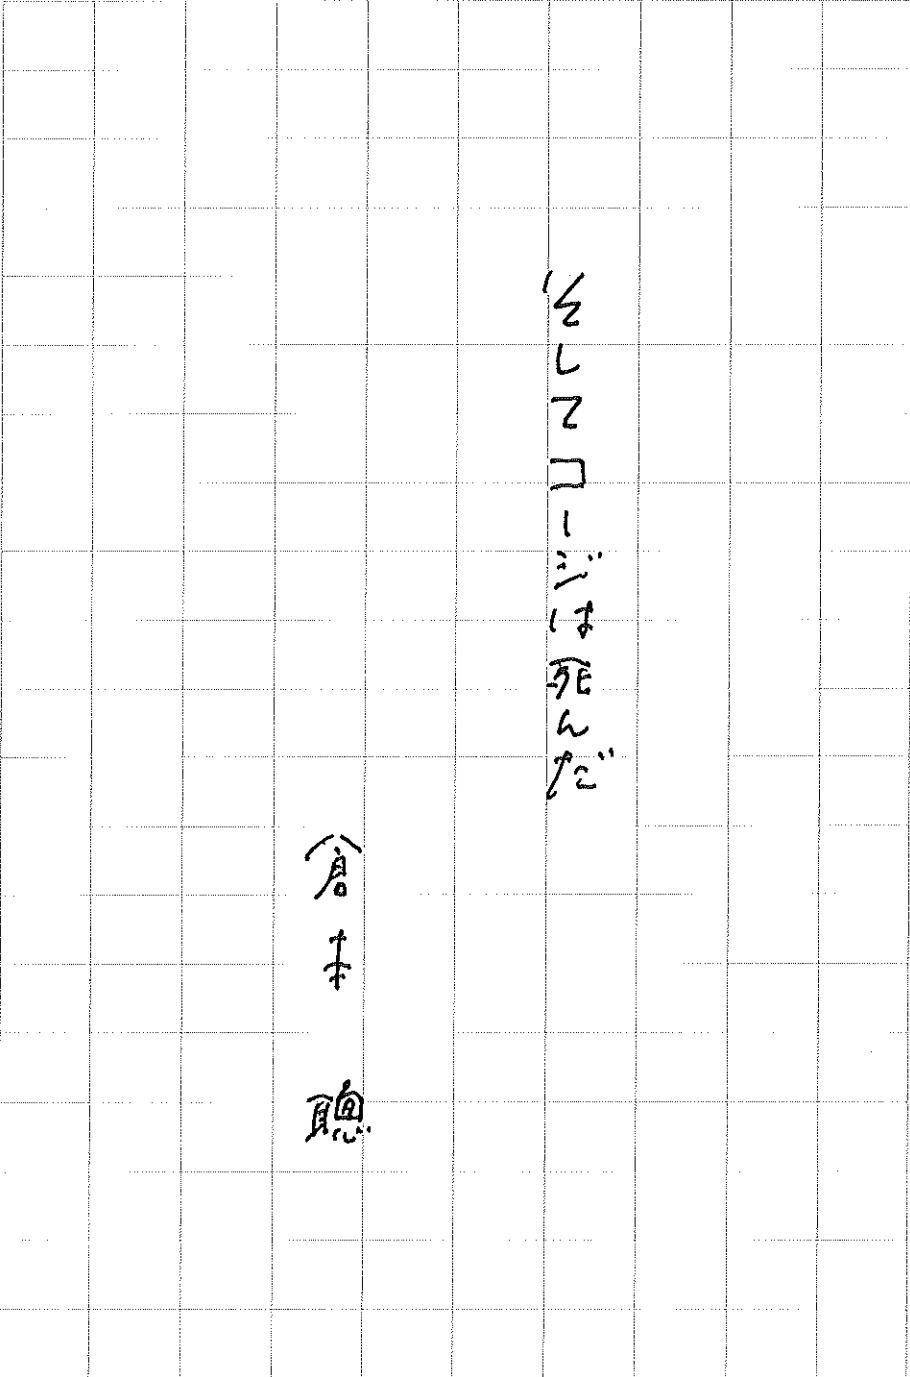 そしてコージは死んだ
倉本 聰